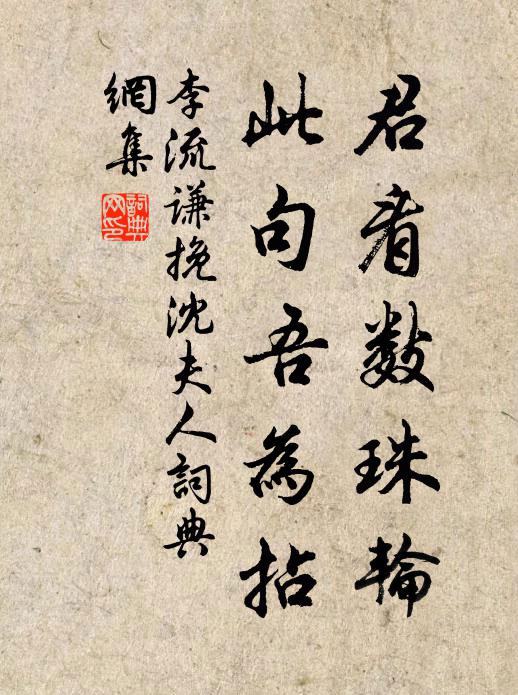 君看数珠輪
此句吾為拈
李流謙挽沈夫人詞典
網集
詞典
网印